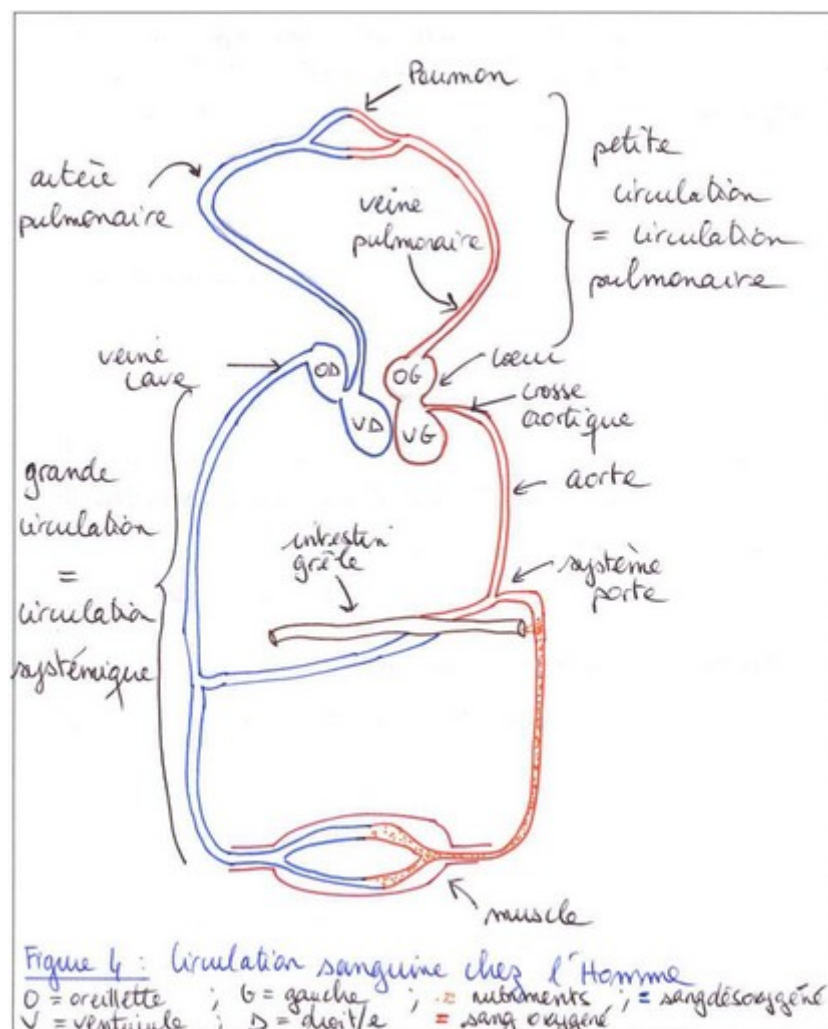 Poumon
artère
pulmonaire
veine
pulmonaire
petite
circulation
= circulation
pulmonaire
veine
cave
OD
VD
OG
VG
cœur
crosse
aortique
aorte
grande
circulation
=
circulation
systémique
intestin
grêle
système
porte
muscle
Figure 4 : Circulation sanguine chez l'Homme
O = oreillette ; G = gauche ; nutriments ; = sang désoxygéné
V = ventricule ; D = droit/e = sang oxygéné